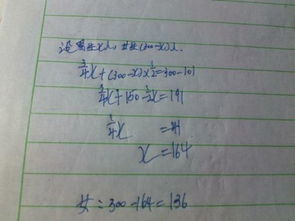 设男生x人,女生(300-x)人.
3/4x+(300-x)×1/2=300-109
3/4x+150-1/2x=191
1/4x =41
x =164
女:300-164=136